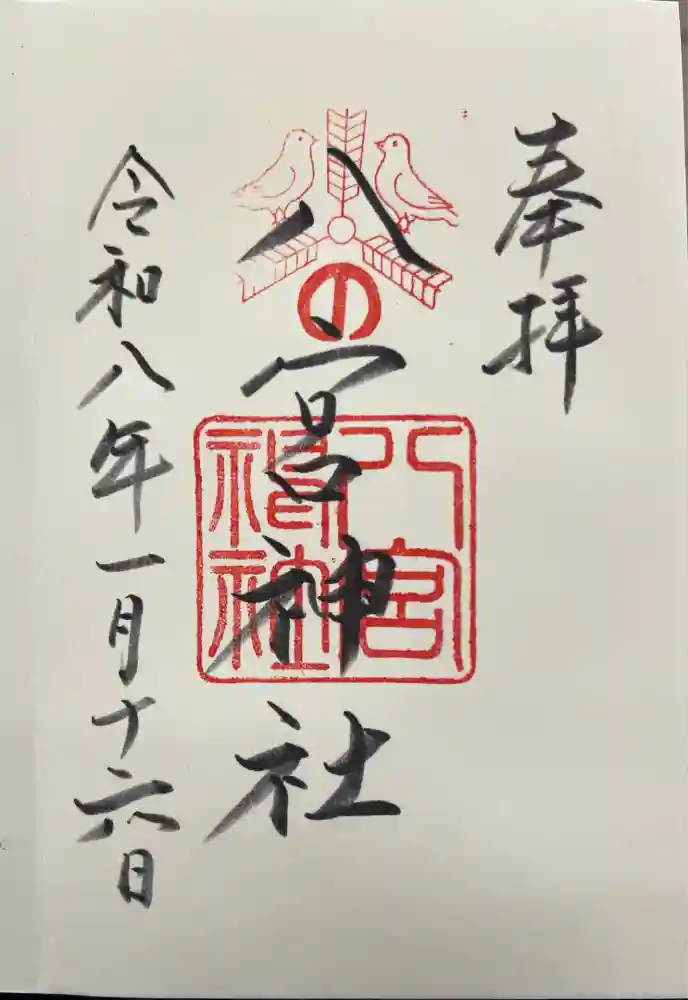 奉拝
八宮神社
八宮神社
令和八年一月十六日